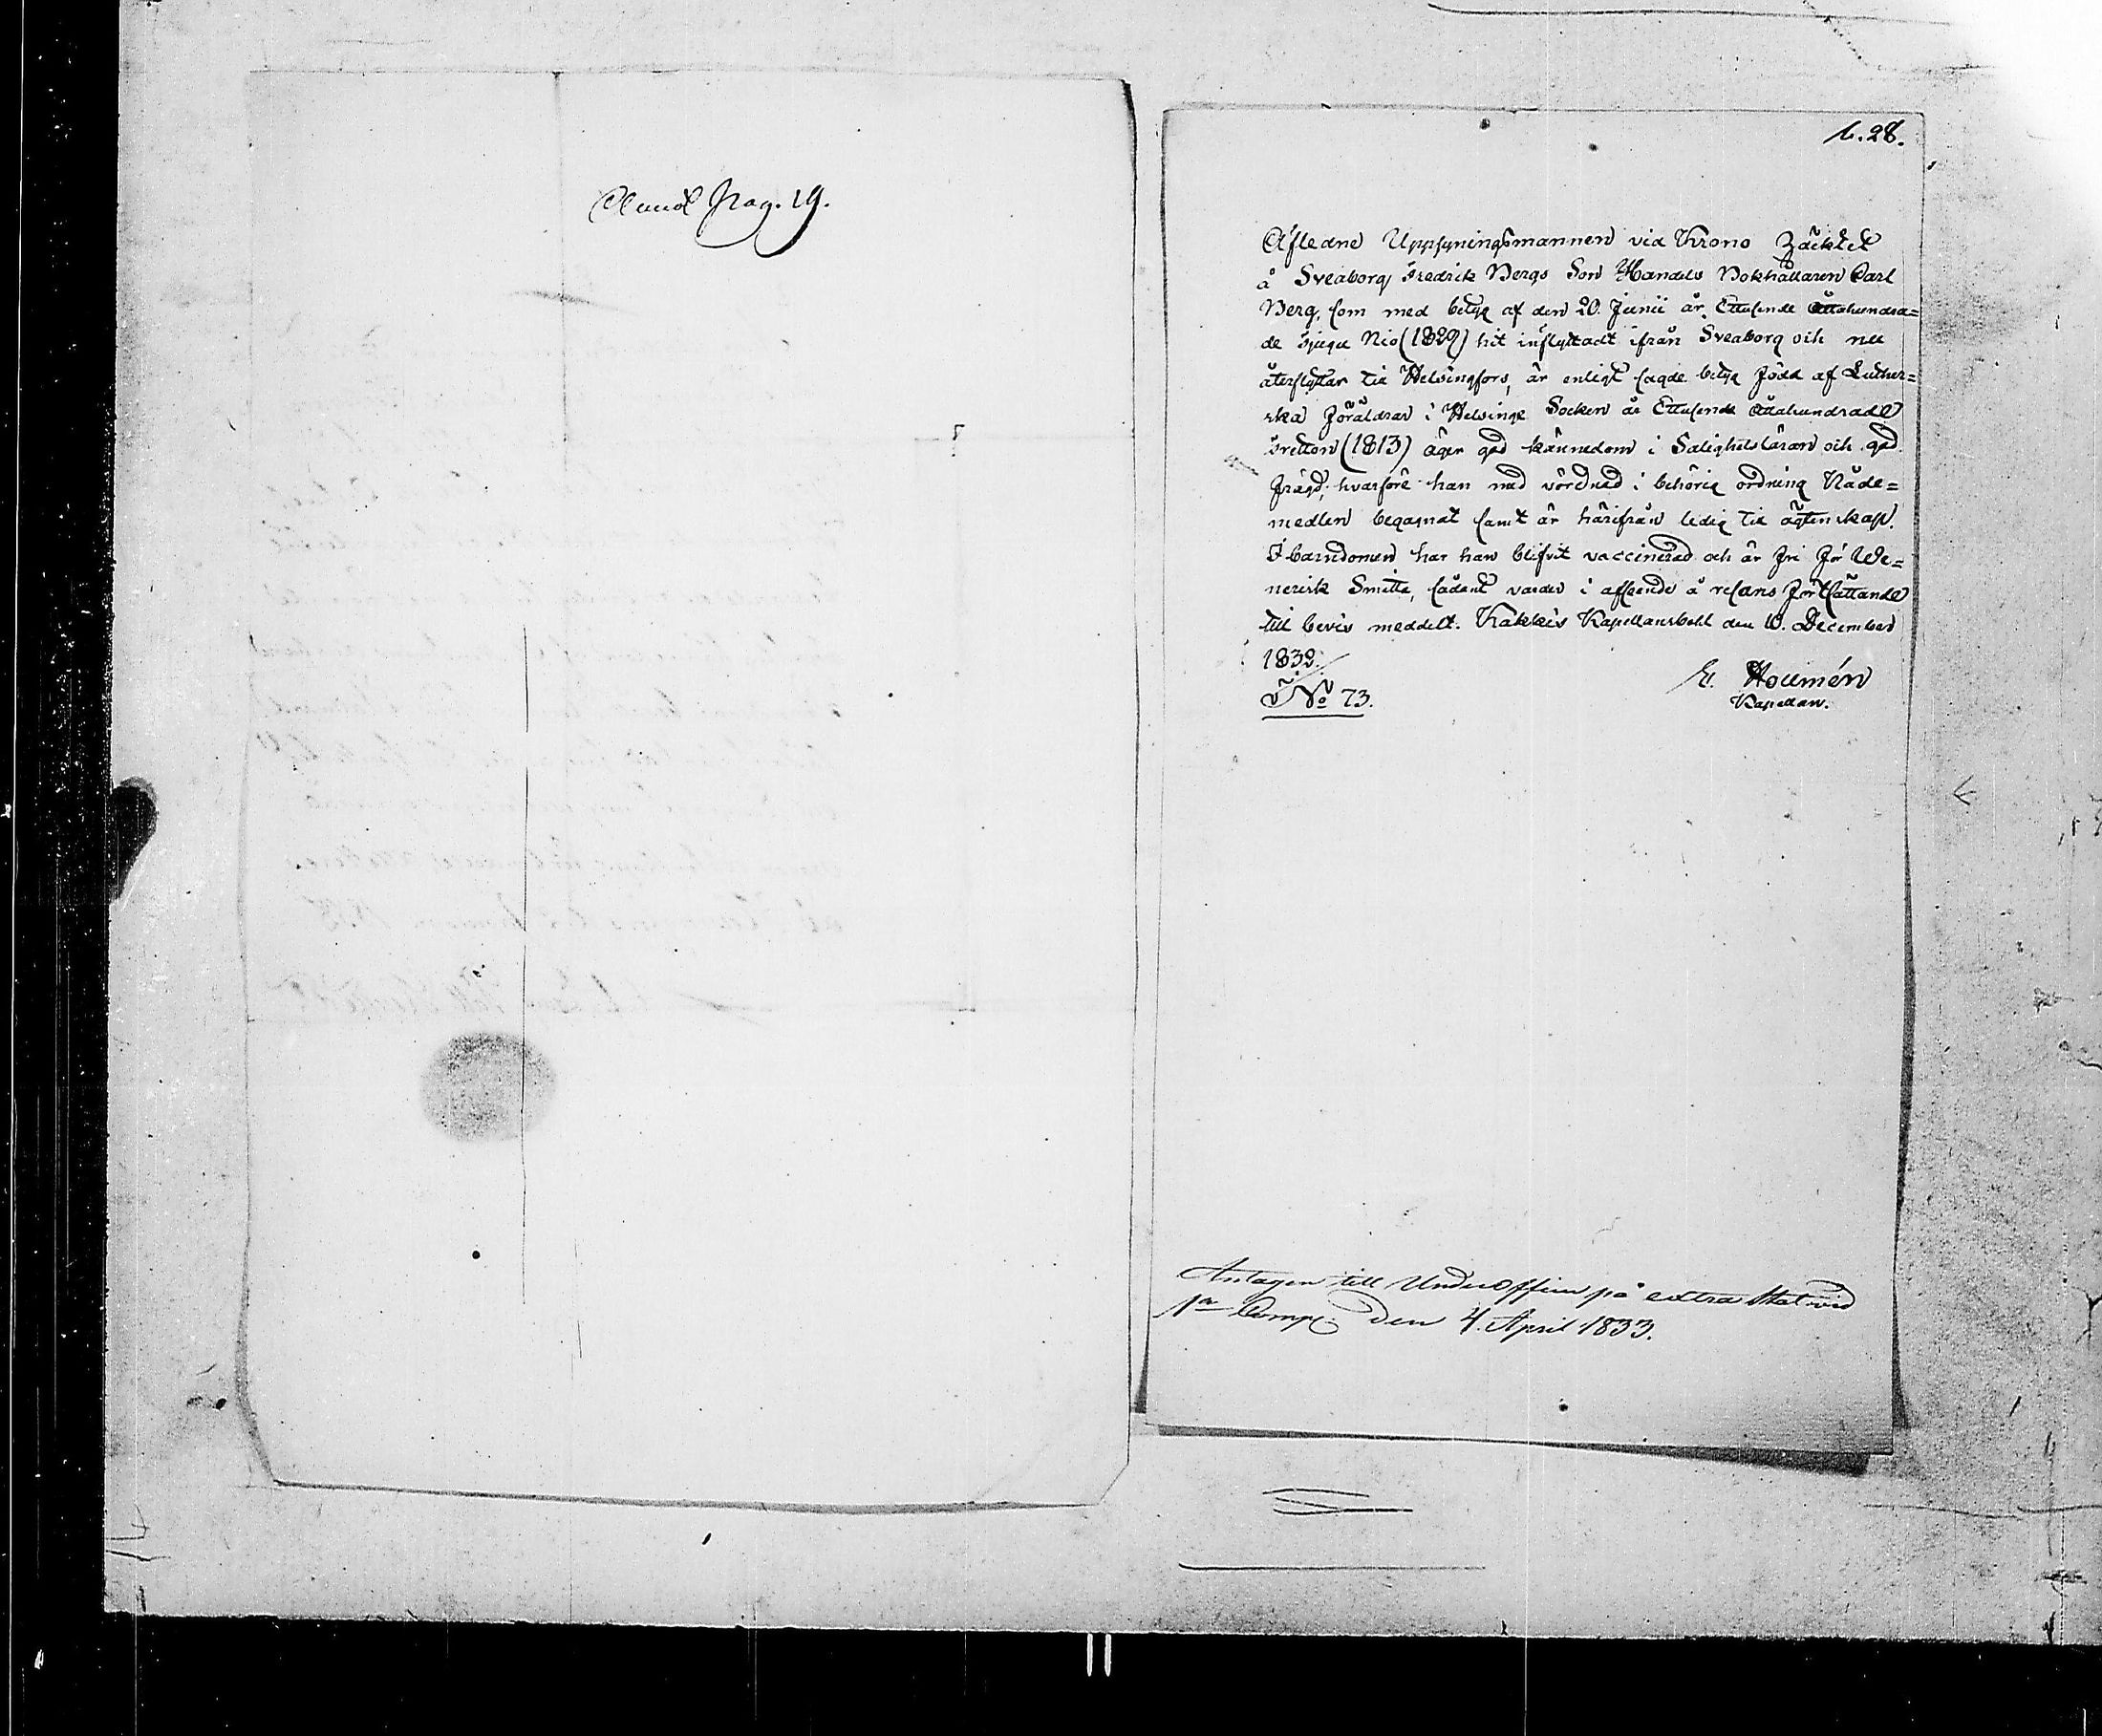 pag. 19.
1. 28.
Afledne Uppsyningsmannen vid Krono Häcktet
å Sveaborg Fredrik Bergs Son Handels Bokhållaren Carl
Berg, som med betyg af den 20 Junii år Ettusende Åttahundra=
de tjugu Nio (1829) hit inflyttadt ifrån Sveaborg och nu
återflyttar till Helsingfors, är enligt sagde betyg född af Luther=
ska föräldrar i Helsinge Socken år Ettusende Åttahundrade
tretton (1813) äger god kännedom i Salighetsläran och god
frägd, hvarföre han med vördnad i behörig ordning Nåde=
medlen begagnat samt är härifrån ledig till ägtenskap.
I barndomen har han blifvit vaccinerad och är fri för We=
nerisk Smitta, sådant varder i afseende å resans fortsättande
till bevis meddelt. Kakkis Kapellansbohl den 10. December
1832.
No 73.
E. Houmén
Kapellan.
Antagen till Underofficer på extra Stat vid
1a Comp. den 4 April 1833.